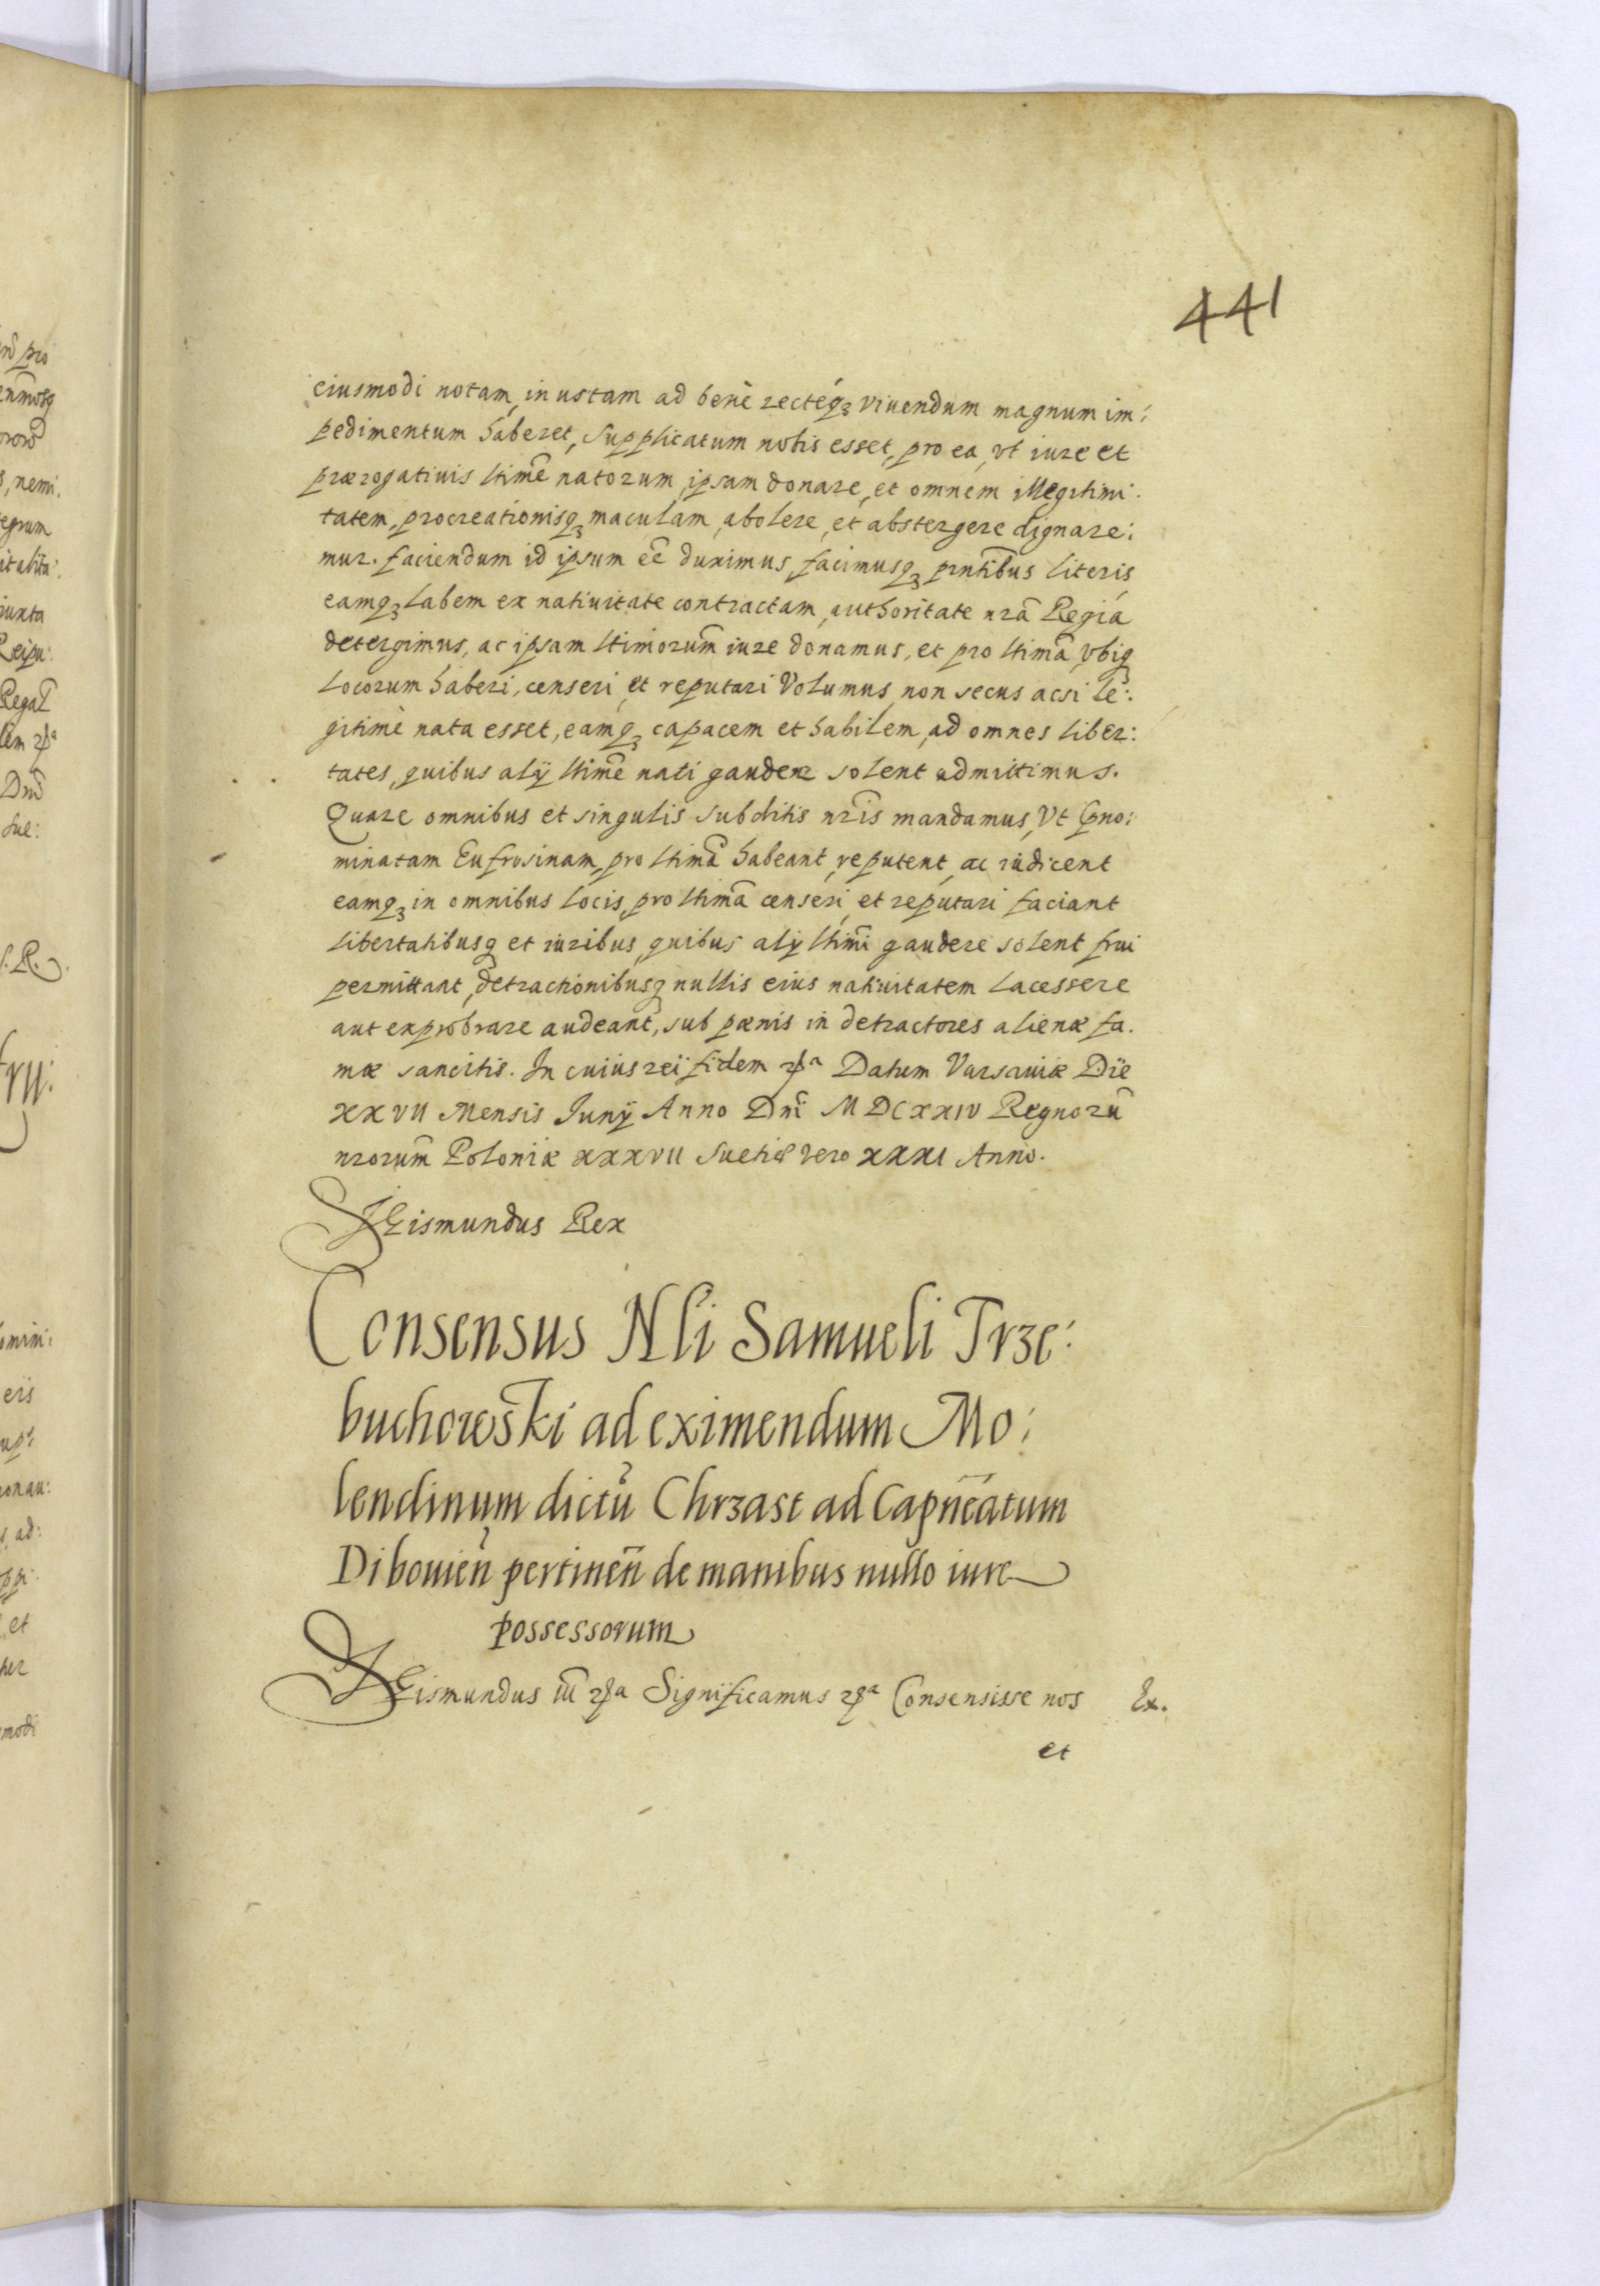 441
eiusmodi notam, inustam ad benè rectéq₃ viuendum magnum im:
pedimentum haberet, supplicatum nobis esset, pro ea, vt iure et
prærogatiuis ltimẽ natorum ipsam donare, et omnem illegitimi:
tatem, procreationisq₃ maculam, abolere, et abstergere dignare:
mur. faciendum id ipsum eẽ duximus, facimusq₃ pñtibus literis
eamq₃ labem ex natiuitate contractam, authoritate nr̃a Regia
detergimus, ac ipsam ltimorum̃ iure donamus, et pro ltimã, vbiq₃
locorum haberi, censeri, et reputari Volumus, non secus acsi le:
gitimè nata esset, eamq₃ capacem et habilem, ad omnes liber:
tates, quibus alÿ ltimẽ nati gaudere solent admittimus.
Quare omnibus et singulis subditis nr̃is mandamus, Vt p̃no:
minatam Eufrosinam, pro ltimã habeant, reputent, ac iudicent
eamq₃ in omnibus locis, pro ltimã censeri, et reputari faciant
libertatibusq₃ et iuribus, quibus alÿ ltimĩ gaudere solent frui
permittant, detractionibusq₃ nullis eius natiuitatem lacessere
aut exprobrare audeant, sub pœnis in detractores alienæ fa:
mæ sancitis. In cuius rei fidem ꝛꝑᵃ Datum Varsauiæ Die
XXVII Mensis Junÿ Anno Dnĩ MDCXXIV Regnorũ
nrorum̃ Poloniæ XXXVII Suetiæ vero XXXI Anno.
Sigismundus Rex
Consensus Nli Samueli Trze:
buchowski ad eximendum Mo:
lendinum dictũ Chrzast ad Capnẽatum
Dibouien̄ pertinen̄ de manibus nullo iure
possessorum
Sigismundus iũ ꝛꝑᵃ Significamus ꝛꝑᵃ Consensisse nos Ex.
et